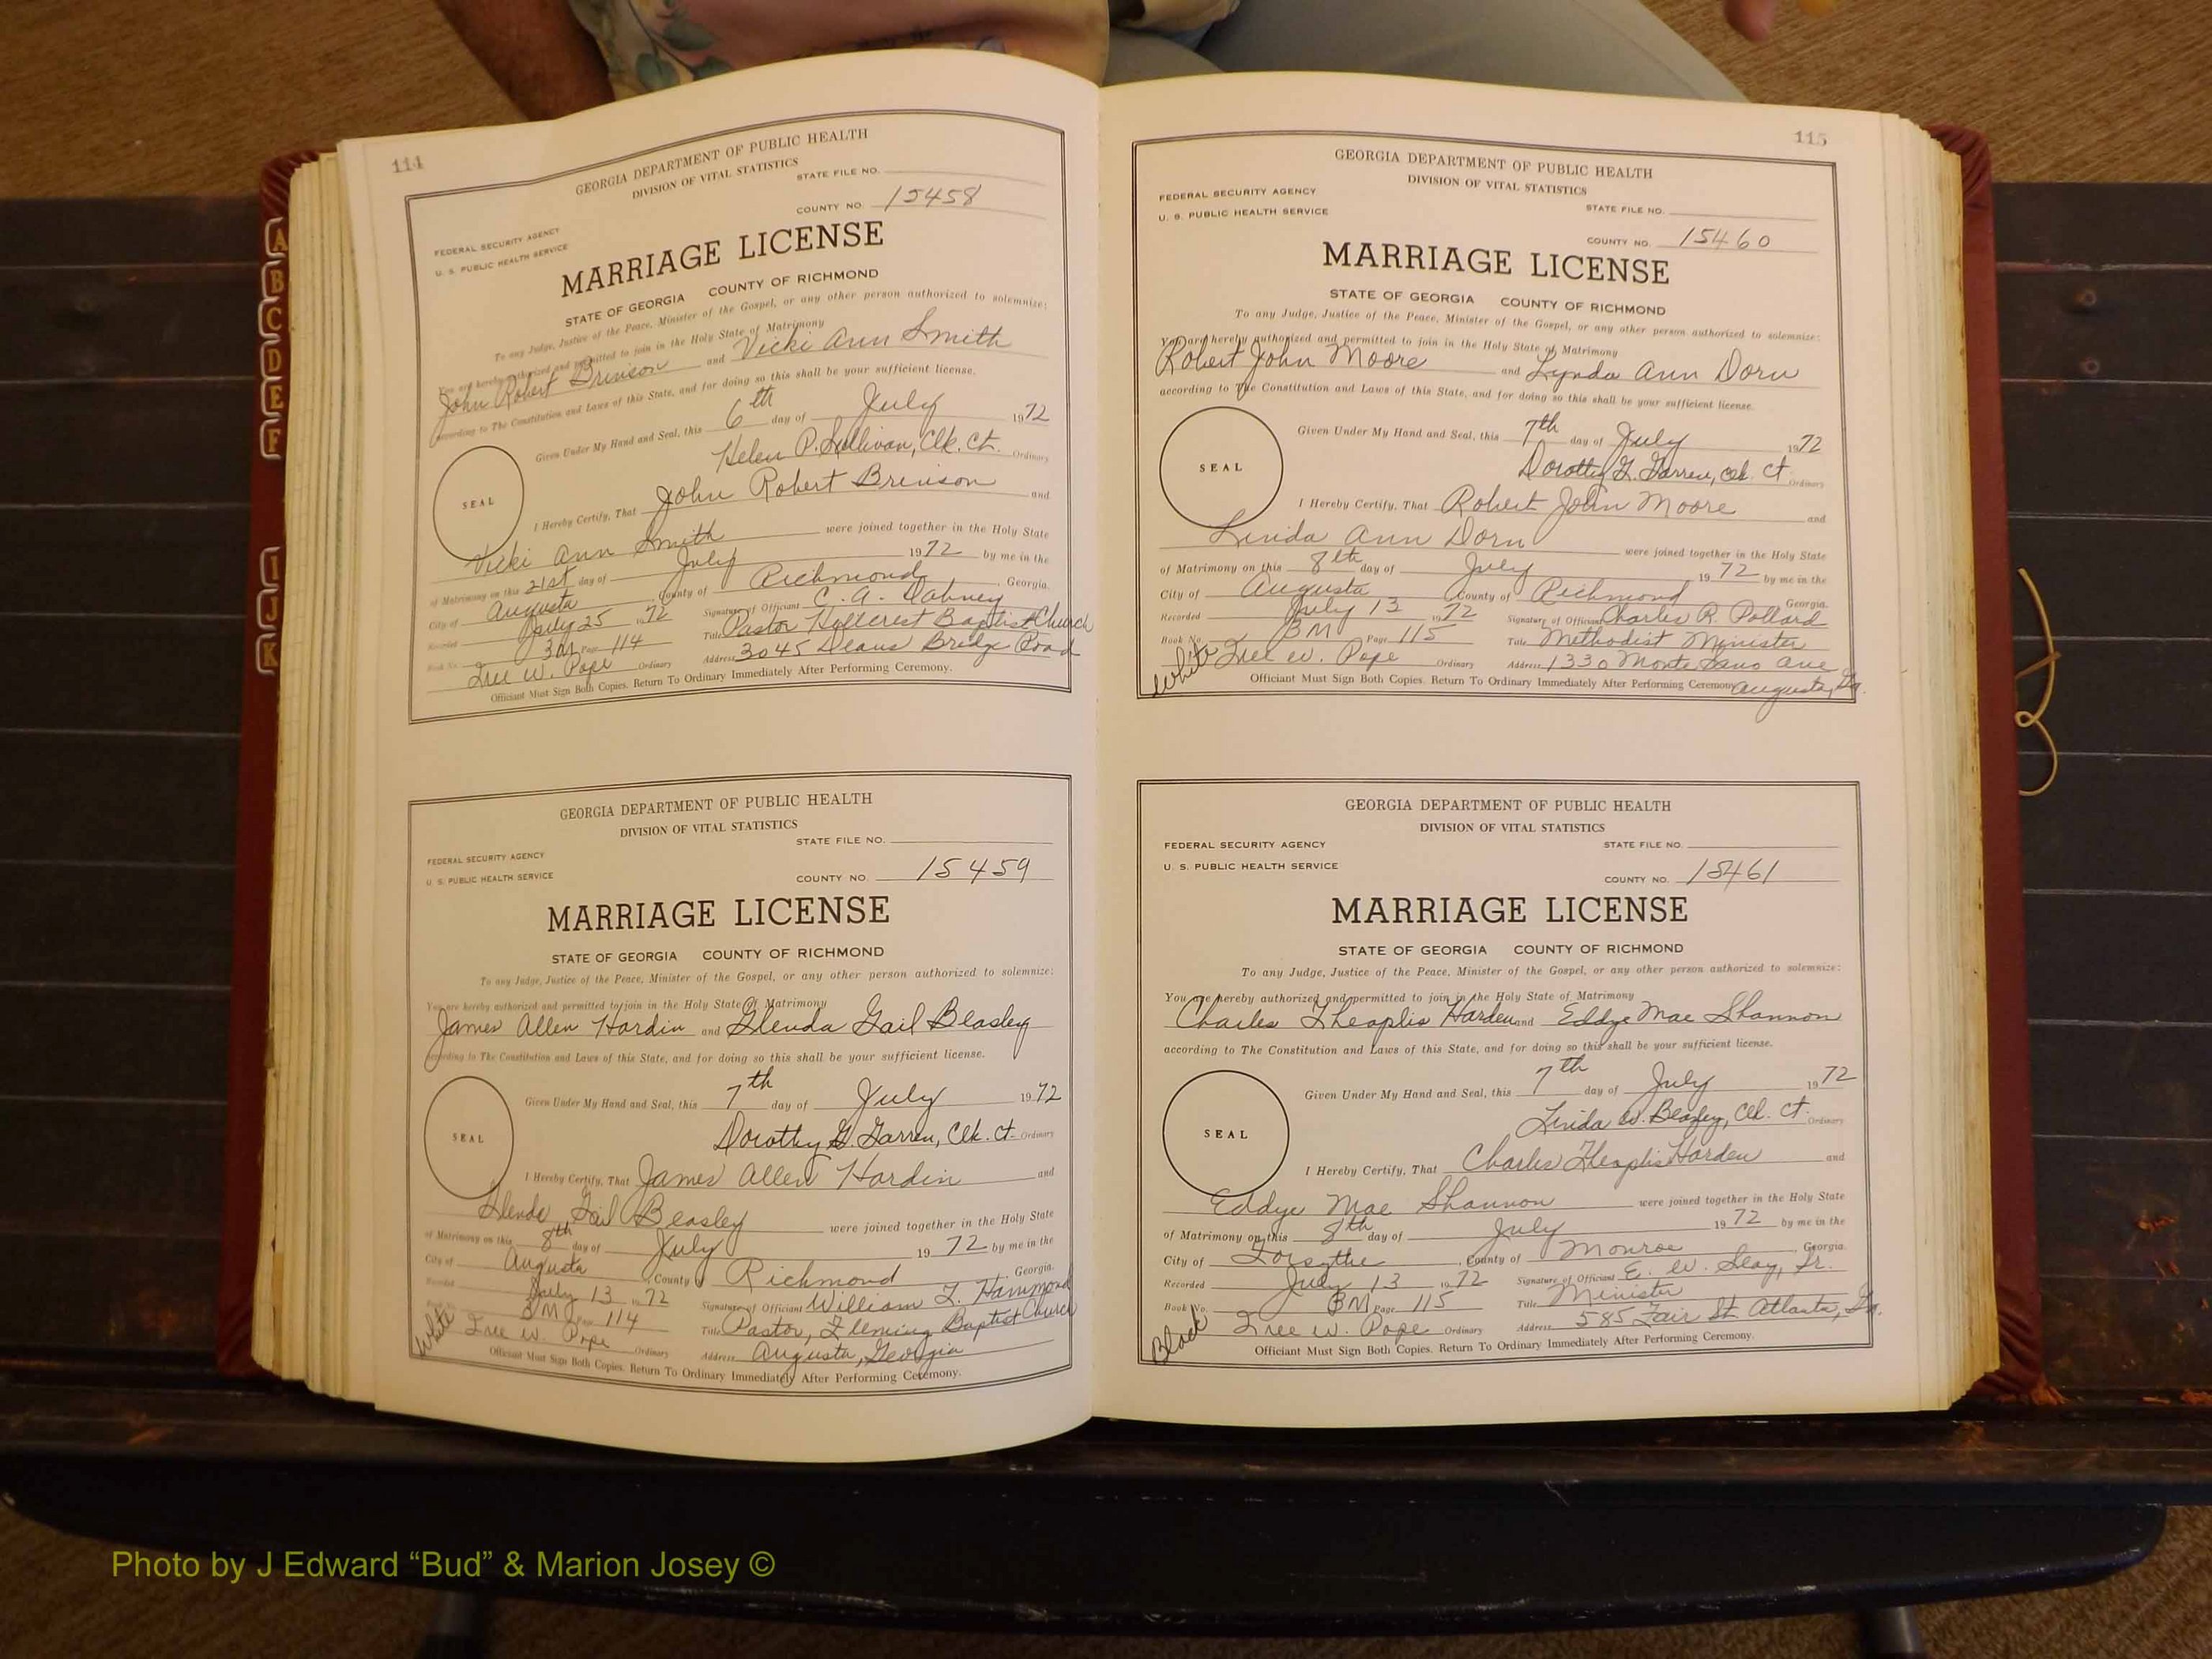 114
GEORGIA DEPARTMENT OF PUBLIC HEALTH
DIVISION OF VITAL STATISTICS
STATE FILE NO.
COUNTY NO. 15458
FEDERAL SECURITY AGENCY
U. S. PUBLIC HEALTH SERVICE
MARRIAGE LICENSE
STATE OF GEORGIA COUNTY OF RICHMOND
To any Judge, Justice of the Peace, Minister of the Gospel, or any other person authorized to solemnize:
You are hereby authorized and permitted to join in the Holy State of Matrimony
John Robert Brinson and Vicki Ann Smith
according to The Constitution and Laws of this State, and for doing so this shall be your sufficient license.
Given Under My Hand and Seal, this 6th day of July 1972
Helen P. Sullivan, Clk. Ct. Ordinary
SEAL
I Hereby Certify, That John Robert Brinson and
Vicki Ann Smith were joined together in the Holy State
of Matrimony on this 21st day of July 1972 by me in the
City of Augusta, County of Richmond, Georgia.
Recorded July 25 1972 Signature of Officiant C. A. Dabney
Book No. 3M Page 114 Title Pastor Hillcrest Baptist Church
Tree W. Pope Ordinary Address 3045 Deans Bridge Road
Officiant Must Sign Both Copies. Return To Ordinary Immediately After Performing Ceremony.
GEORGIA DEPARTMENT OF PUBLIC HEALTH
DIVISION OF VITAL STATISTICS
STATE FILE NO.
FEDERAL SECURITY AGENCY
U. S. PUBLIC HEALTH SERVICE
COUNTY NO. 15459
MARRIAGE LICENSE
STATE OF GEORGIA COUNTY OF RICHMOND
To any Judge, Justice of the Peace, Minister of the Gospel, or any other person authorized to solemnize:
You are hereby authorized and permitted to join in the Holy State of Matrimony
James Allen Hardin and Glenda Gail Beasley
according to The Constitution and Laws of this State, and for doing so this shall be your sufficient license.
Given Under My Hand and Seal, this 7th day of July 1972
Dorothy G. Garren, Clk. Ct. Ordinary
SEAL
I Hereby Certify, That James Allen Hardin and
Glenda Gail Beasley were joined together in the Holy State
of Matrimony on this 8th day of July 1972 by me in the
City of Augusta, County of Richmond, Georgia.
Recorded July 13 1972 Signature of Officiant William L. Hammond
Book No. 3M Page 114 Title Pastor, Fleming Baptist Church
White Tree W. Pope Ordinary Address Augusta, Georgia
Officiant Must Sign Both Copies. Return To Ordinary Immediately After Performing Ceremony.
115
GEORGIA DEPARTMENT OF PUBLIC HEALTH
DIVISION OF VITAL STATISTICS
FEDERAL SECURITY AGENCY
U. S. PUBLIC HEALTH SERVICE
STATE FILE NO.
COUNTY NO. 15460
MARRIAGE LICENSE
STATE OF GEORGIA COUNTY OF RICHMOND
To any Judge, Justice of the Peace, Minister of the Gospel, or any other person authorized to solemnize:
You are hereby authorized and permitted to join in the Holy State of Matrimony
Robert John Moore and Lynda Ann Dorn
according to The Constitution and Laws of this State, and for doing so this shall be your sufficient license.
Given Under My Hand and Seal, this 7th day of July 1972
Dorothy G. Garren, Clk. Ct. Ordinary
SEAL
I Hereby Certify, That Robert John Moore and
Linda Ann Dorn were joined together in the Holy State
of Matrimony on this 8th day of July 1972 by me in the
City of Augusta County of Richmond Georgia.
Recorded July 13 1972 Signature of Officiant Charles R. Pollard
Book No. 3M Page 115 Title Methodist Minister
White Tree W. Pope Ordinary Address 1330 Monte Sano Ave
Officiant Must Sign Both Copies. Return To Ordinary Immediately After Performing Ceremony. Augusta, Ga.
GEORGIA DEPARTMENT OF PUBLIC HEALTH
DIVISION OF VITAL STATISTICS
FEDERAL SECURITY AGENCY
U. S. PUBLIC HEALTH SERVICE
STATE FILE NO.
COUNTY NO. 15461
MARRIAGE LICENSE
STATE OF GEORGIA COUNTY OF RICHMOND
To any Judge, Justice of the Peace, Minister of the Gospel, or any other person authorized to solemnize:
You are hereby authorized and permitted to join in the Holy State of Matrimony
Charles Theaplis Harden and Eddye Mae Shannon
according to The Constitution and Laws of this State, and for doing so this shall be your sufficient license.
Given Under My Hand and Seal, this 7th day of July 1972
Linda W. Beazley, Clk. Ct. Ordinary
SEAL
I Hereby Certify, That Charles Theaplis Harden and
Eddye Mae Shannon were joined together in the Holy State
of Matrimony on this 8th day of July 1972 by me in the
City of Forsythe, County of Monroe, Georgia
Recorded July 13 1972 Signature of Officiant E. W. Slay, Sr.
Book No. 3M Page 115 Title Minister
Black Tree W. Pope Ordinary Address 585 Fair St. Atlanta, Ga.
Officiant Must Sign Both Copies. Return To Ordinary Immediately After Performing Ceremony.
A
B
C
D
E
F
I
J
K
Photo by J Edward “Bud” & Marion Josey ©